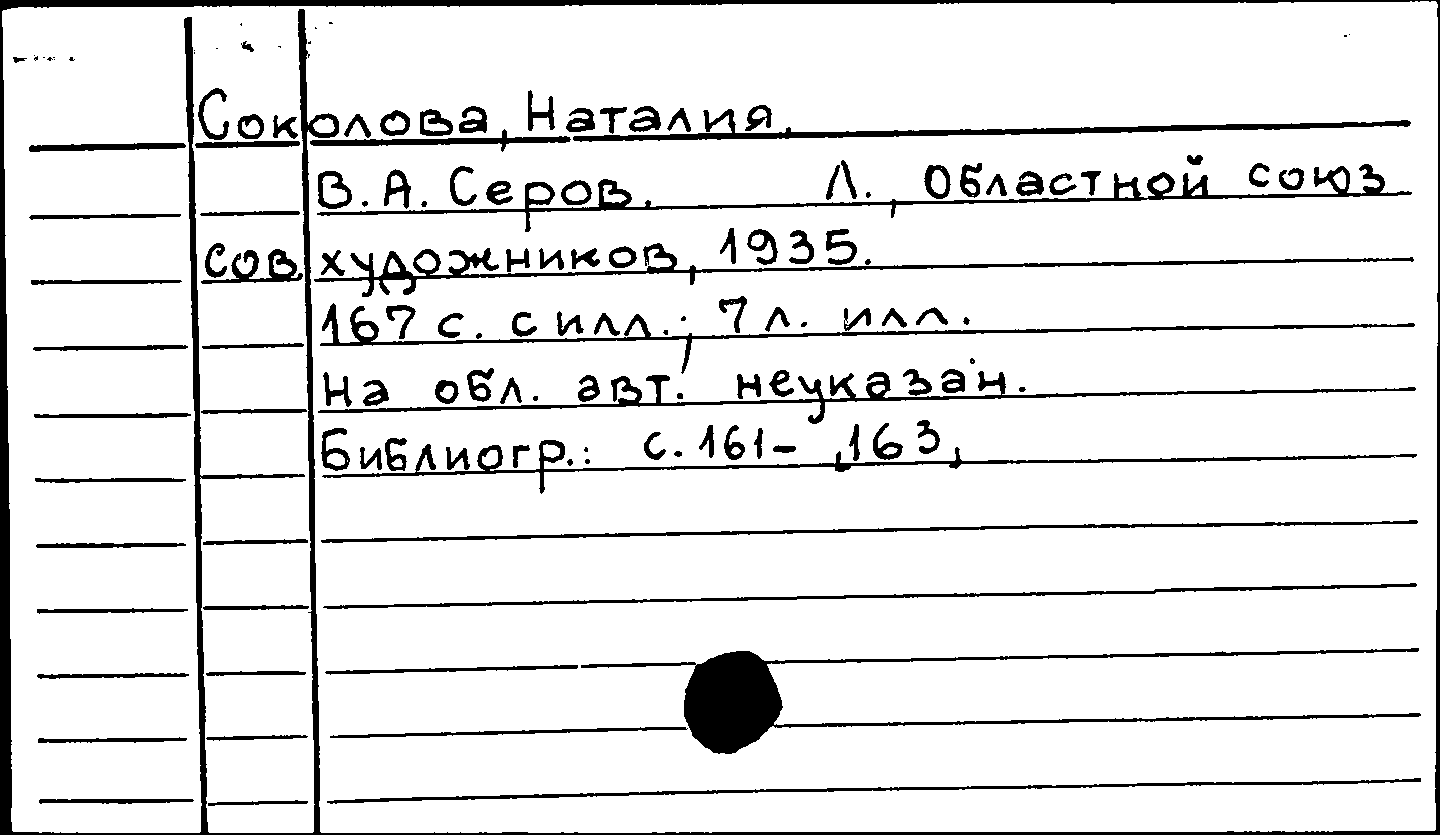 Соколова, Наталия.
В.А. Серов. Л., Областной союз
сов. художников, 1935.
167 с. с илл.; 7 л. илл.
На обл. авт. неуказан.
Библиогр.: с. 161-163.